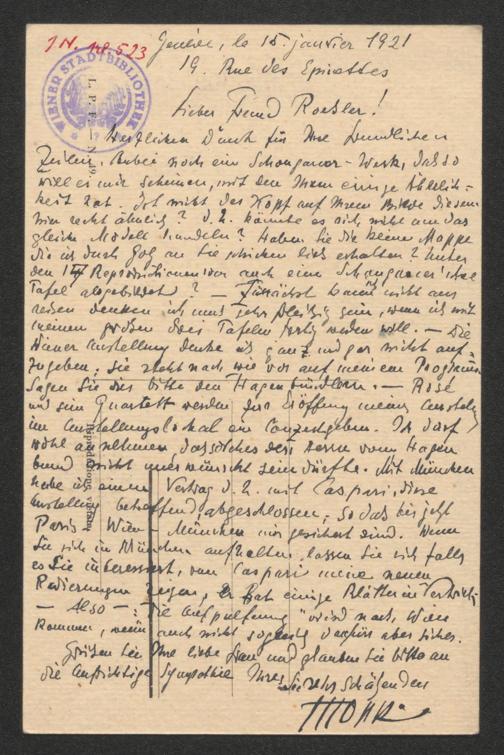 J.N. 148.523
WIENER STADTBIBLIOTHEK
Genève, le 15. janvier 1921
19. Rue des Epinettes
Lieber Freund Roessler!
Herzlichen Dank für Ihre freundlichen
Zeilen. Anbei noch ein Schongauer-Werk, das so
will es mir scheinen, mit dem Ihrem einige Ähnlich-
keit hat. Ist nicht der Kopf auf Ihrem Bilde diesem
hier recht ähnlich? D.h. könnte es sich nicht um das
gleiche Modell handeln? Haben Sie die kleine Mappe
die ich durch an Sie schicken liess erhalten? Unter
den Reproductionen war auch eine Schongauer'sche
Tafel abgebildet? — Zunächst kann ich nicht ans
reisen denken ich muss sehr fleißig sein, wenn ich mit
meinen großen drei Tafeln fertig werden will. — Die
Wiener Ausstellung denke ich ganz und gar nicht auf-
zugeben; sie steht nach wie vor auf meinem Programm.
Sagen Sie dies bitte den Hagenbündlern. — Rosé
und sein Quartett werden zur Eröffnung meiner Ausstellg
im Ausstellungslokal ein Conzert geben. Ich darf
wohl annehmen, dass solches den Herrn vom Hagen
bund nicht unerwünscht sein dürfte. Mit München
habe ich einen Vertrag d.h. mit Caspari, diese
Ausstellung betreffend abgeschlossen; so dass bis jetzt
Paris — Wien — München mir gesichert sind. Wenn
Sie sich in München aufhalten, lassen Sie sich falls
es Sie interessiert, von Caspari meine neuen
Radierungen zeigen, Er hat einige Blätter in
— Also —: Die "Auferstehung" wird nach Wien
kommen, wenn auch nicht sogleich dochhin aber sicher.
Grüßen Sie Ihre liebe Frau und glauben Sie bitte an
die aufrichtige Sympathie Ihres
Sie sehr schätzenden